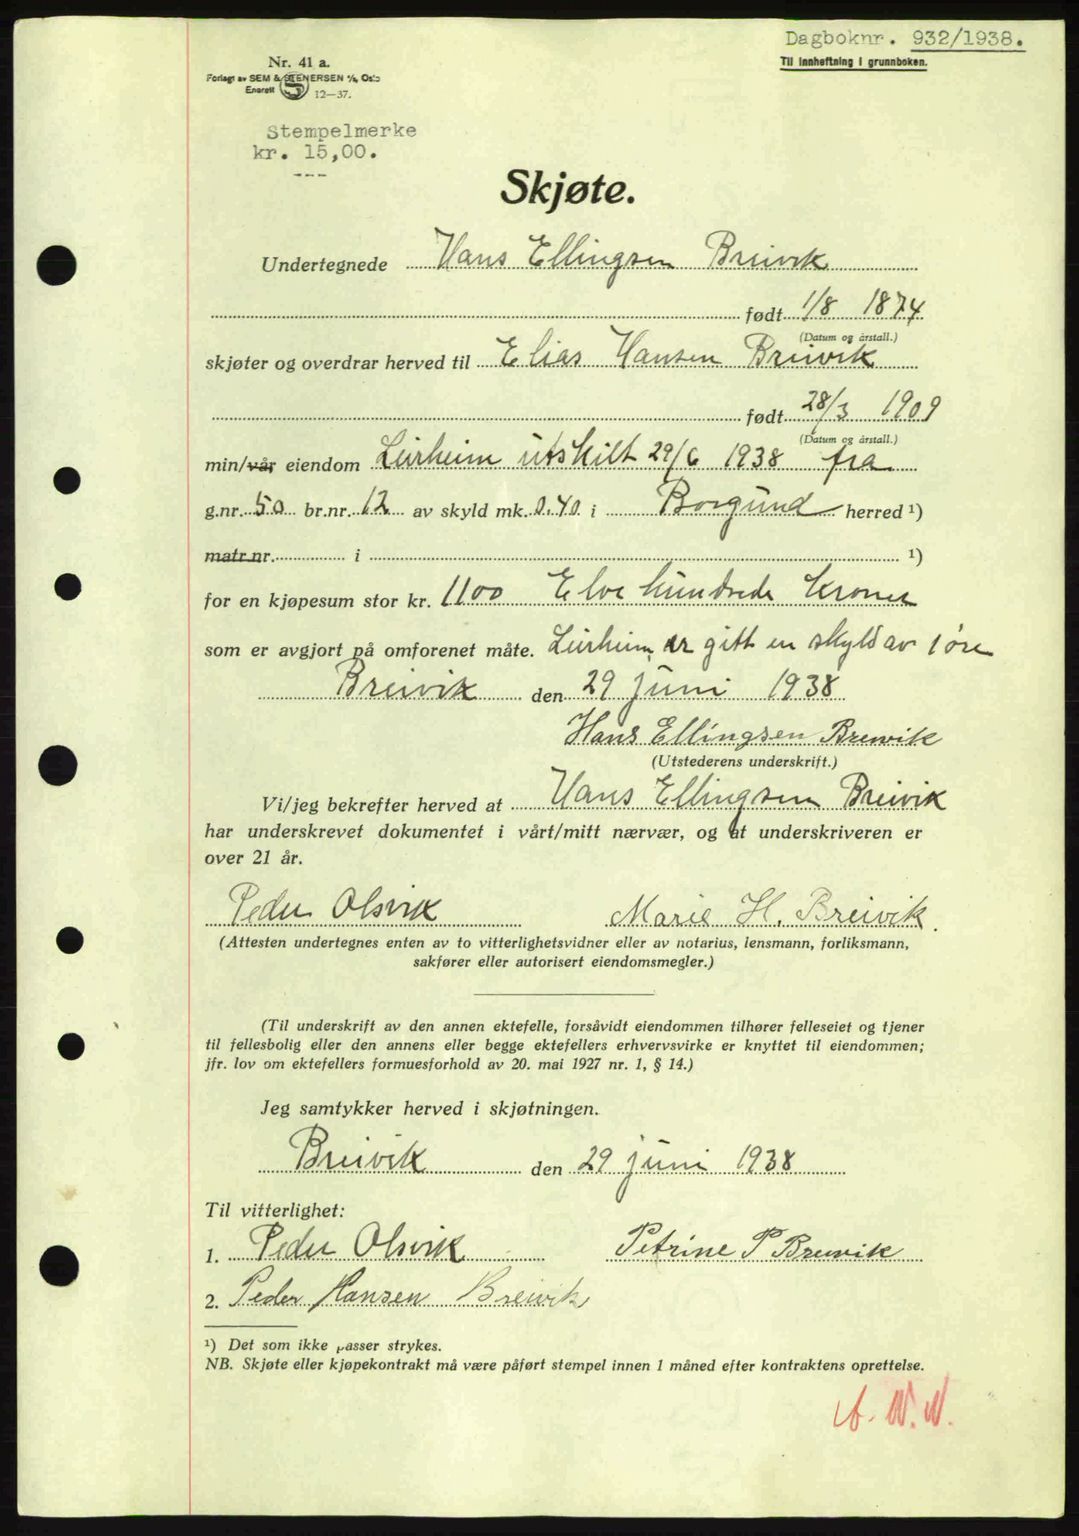 Dagboknr. 932/1938.
Til innheftning i grunnboken.
Nr. 41 a.
Forlagt av SEM & STENERSEN A/S, Oslo
Enerett 12—37.
Stempelmerke
kr. 15,00.
---
Skjøte.
Undertegnede Hans Ellingsen Breivik
født 1/8 1874
(Datum og årstall.)
skjøter og overdrar herved til Elias Hansen Breivik
født 28/3 1909
(Datum og årstall.)
min/vår eiendom Leirheim utskilt 29/6 1938 fra
g.nr. 50 br.nr. 12 av skyld mk. 0.40 i Borgund herred ¹)
matr.nr. i ¹)
for en kjøpesum stor kr. 1100 Elve hundrede kroner
som er avgjort på omforenet måte. Leirheim er gitt en skyld av 1 øre
Breivik den 29 juni 1938
Hans Ellingsen Breivik
(Utstederens underskrift.)
Vi/jeg bekrefter herved at Hans Ellingsen Breivik
har underskrevet dokumentet i vårt/mitt nærvær, og at underskriveren er
over 21 år.
Peder Olsvik Marie H. Breivik.
(Attesten undertegnes enten av to vitterlighetsvidner eller av notarius, lensmann, forliksmann,
sakfører eller autorisert eiendomsmegler.)
(Til underskrift av den annen ektefelle, forsåvidt eiendommen tilhører felleseiet og tjener
til fellesbolig eller den annens eller begge ektefellers erhvervsvirke er knyttet til eiendommen;
jfr. lov om ektefellers formuesforhold av 20. mai 1927 nr. 1, § 14.)
Jeg samtykker herved i skjøtningen.
Breivik den 29 juni 1938
Til vitterlighet:
1. Peder Olsvik Petrine P Breivik
2. Peder Hansen Breivik
¹) Det som ikke passer strykes.
NB. Skjøte eller kjøpekontrakt må være påført stempel innen 1 måned efter kontraktens oprettelse.
A. N. N.